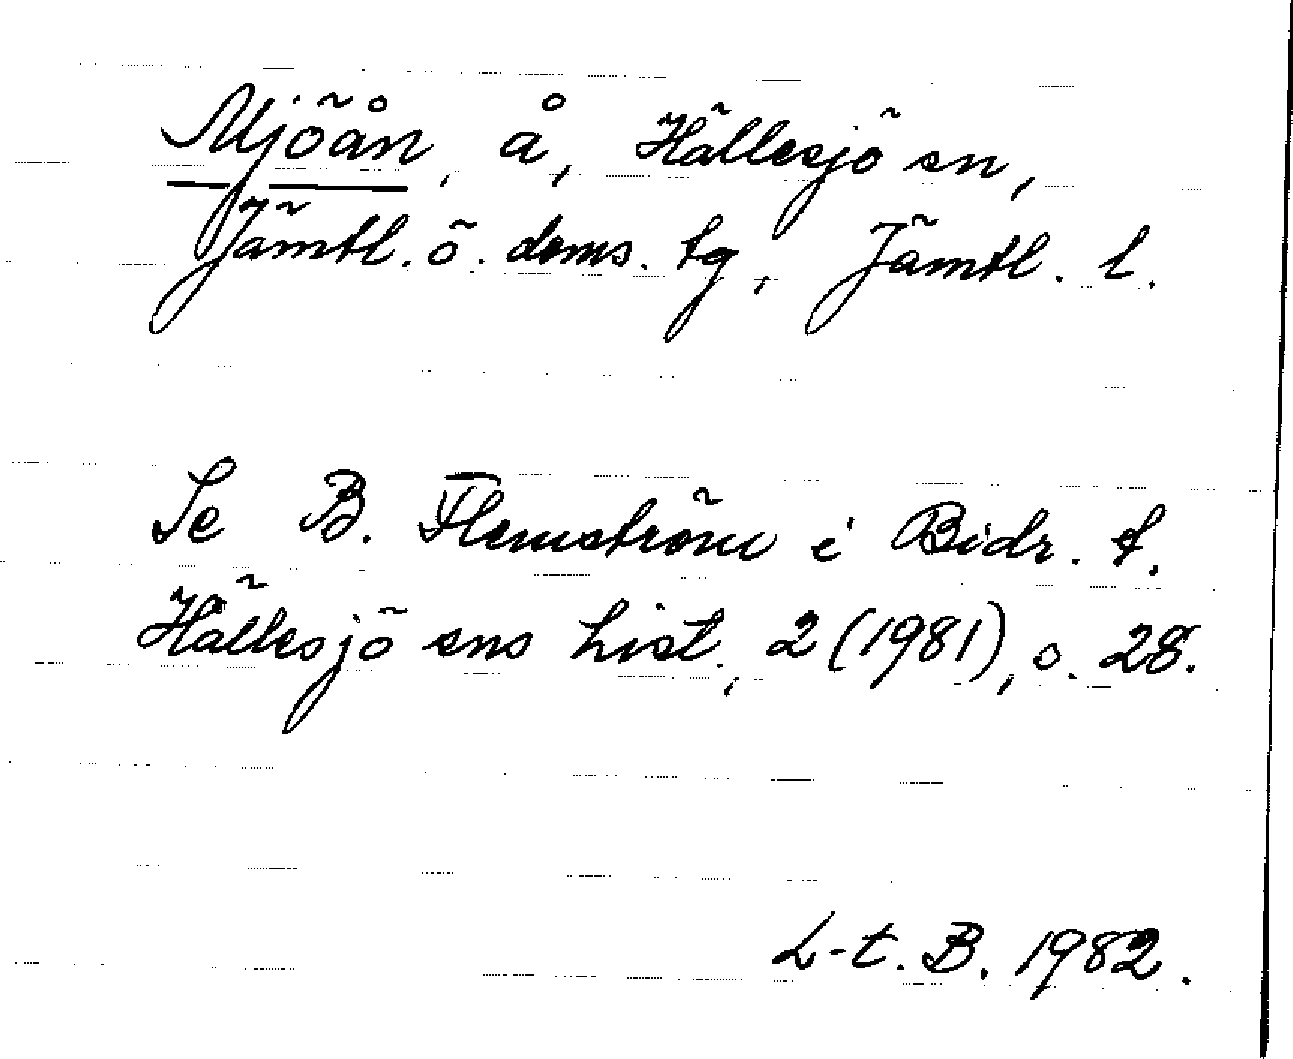 Mjöån, å, Hällesjö sn,
Jämtl. ö. doms. tg, Jämtl. l.
Se B. Flemström i Bidr. t.
Hällesjö sns hist., 2 (1981), s. 28.
L-t. B. 1982.